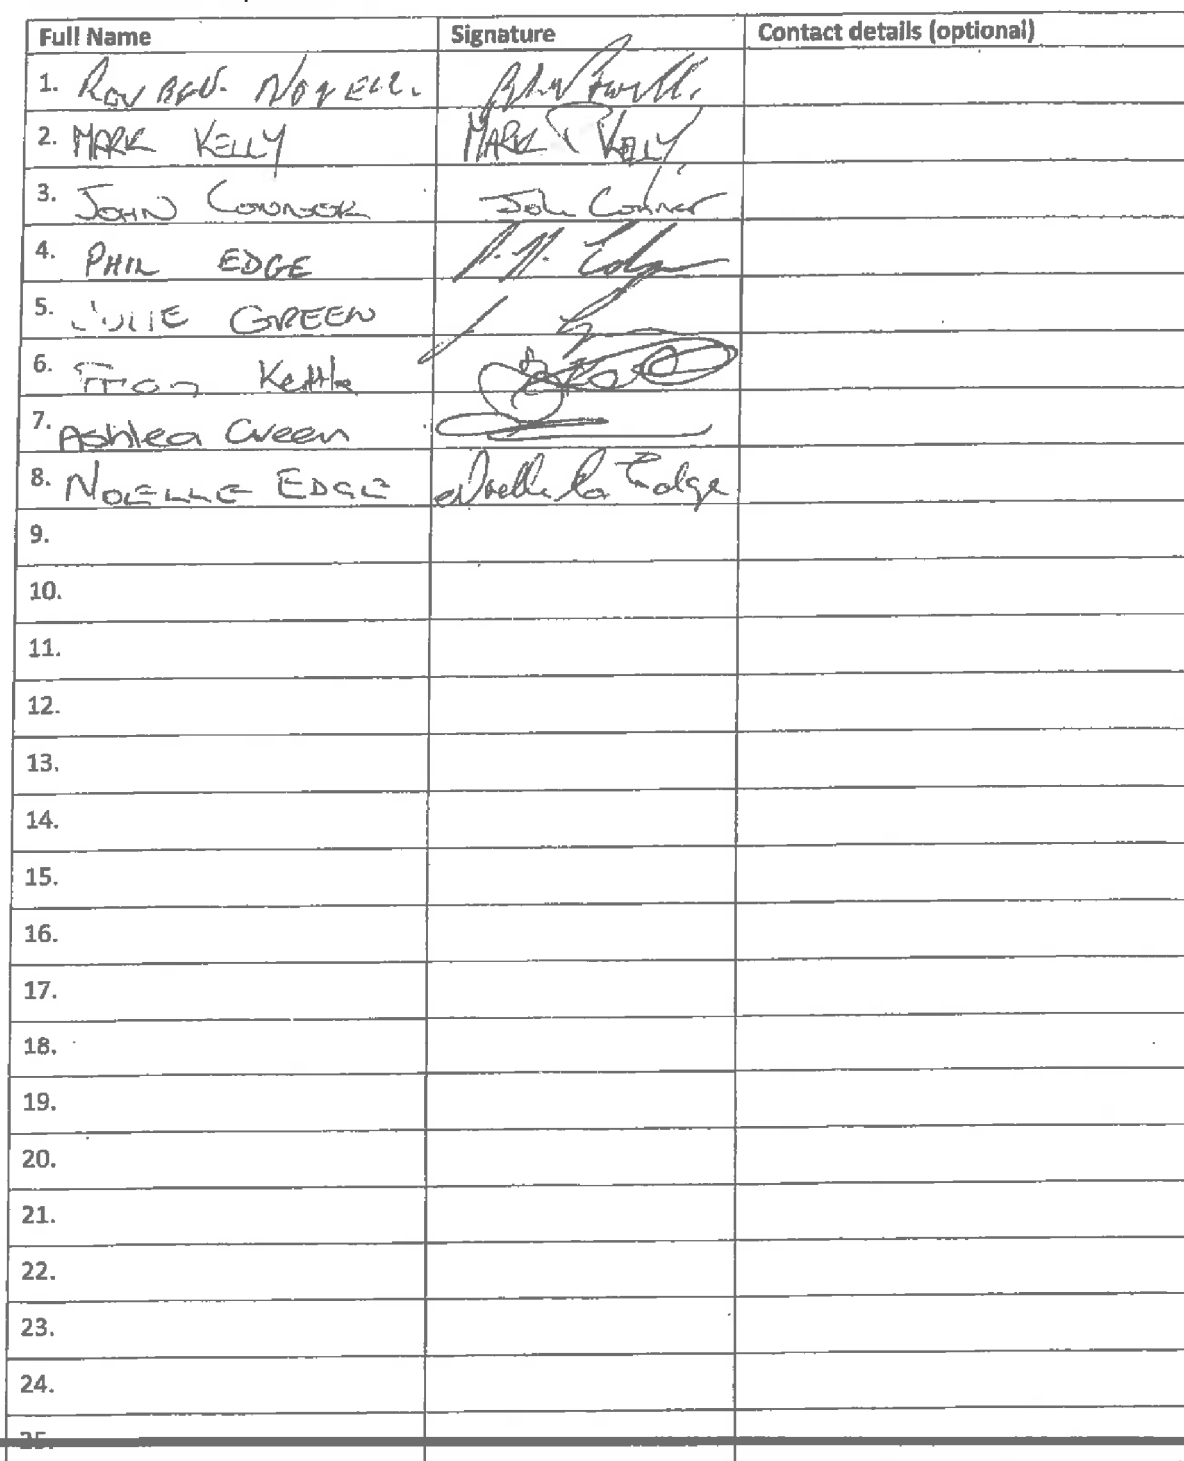 Full Name Signature Contact details (optional)
1.
2. MARK KELLY MARK P KELLY
3. JOHN CONNOR John Connor
4. PHIL EDGE P. N. Edge
5. JULIE GREEN
6. Kettle
7. Ashlea Green
8. NOELLE EDGE Noelle Edge
9.
10.
11.
12.
13.
14.
15.
16.
17.
18.
19.
20.
21.
22.
23.
24.
25.